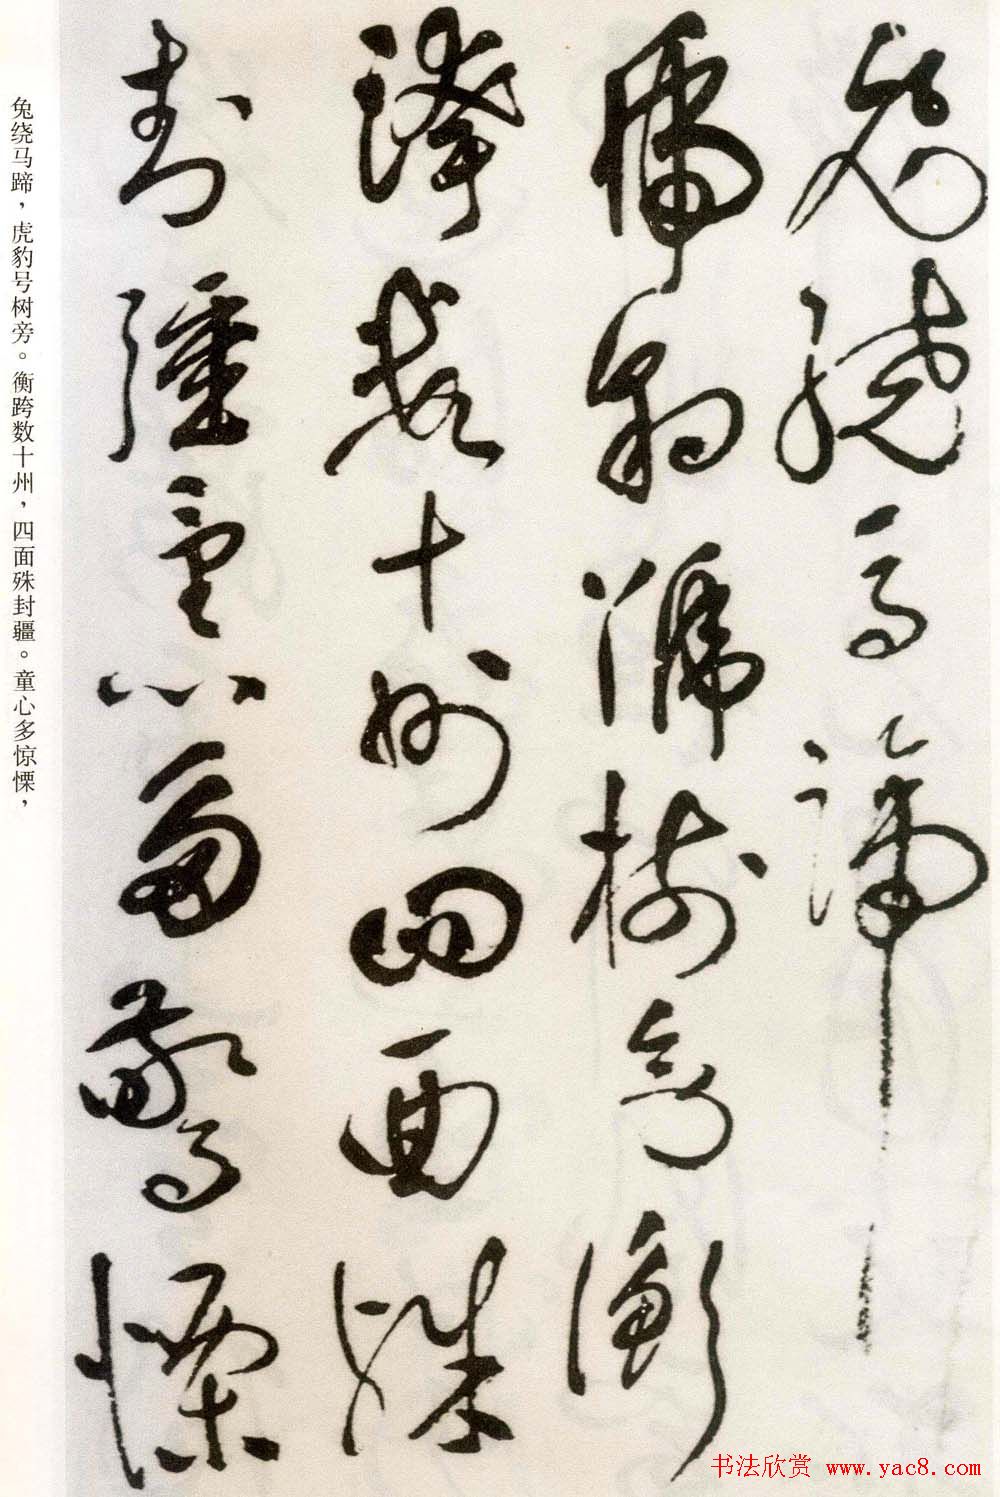 兔绕马蹄
虎豹號树旁衡
跨数十州四面殊
封疆童心多惊慄
兔绕马蹄，虎豹号树旁。衡跨数十州，四面殊封疆。童心多惊慄，
书法欣赏 www.yac8.com